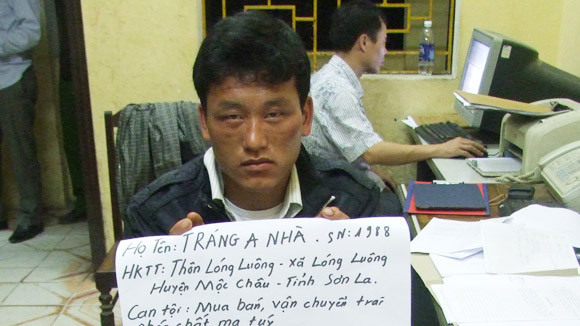 Họ Tên: TRÁNG A NHÀ. SN: 1988
HKTT: Thôn Lóng Luông - Xã Lóng Luông
Huyện Mộc Châu - Tỉnh Sơn La.
Can tội: Mua bán, vận chuyển trái
phép chất ma tuý